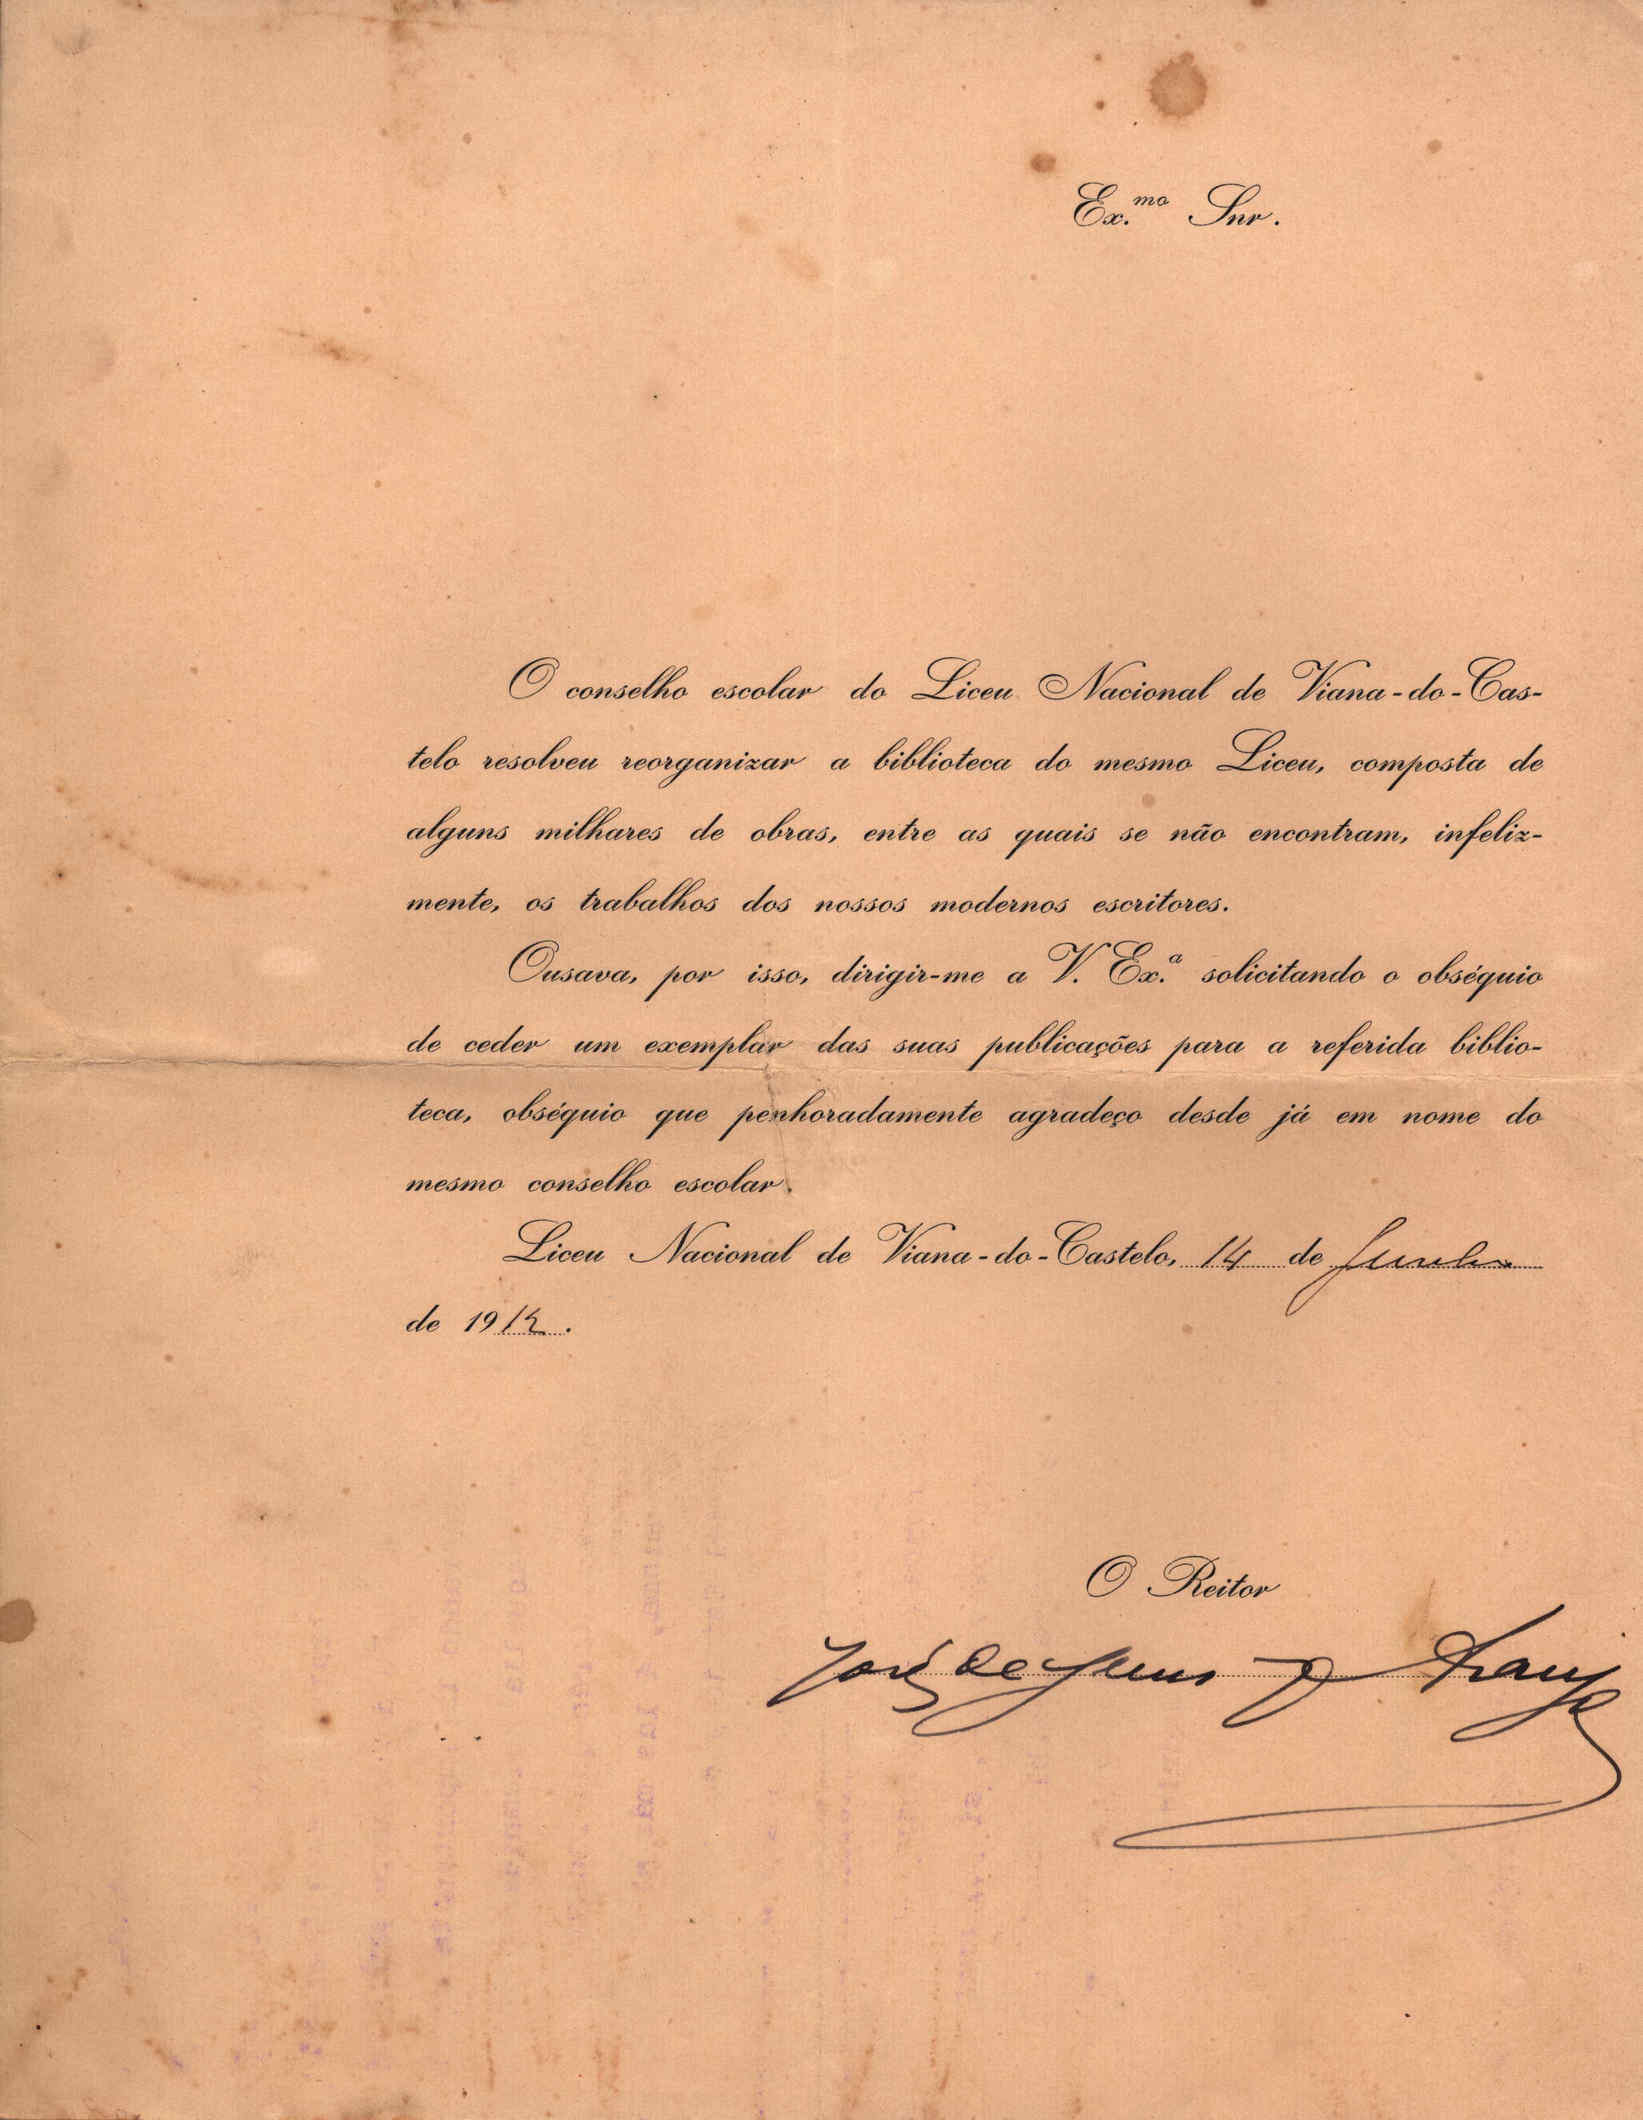 Ex.mo Snr.
O conselho escolar do Liceu Nacional de Viana-do-Cas-
telo resolveu reorganizar a biblioteca do mesmo Liceu, composta de
alguns milhares de obras, entre as quais se não encontram, infeliz-
mente, os trabalhos dos nossos modernos escritores.
Ousava, por isso, dirigir-me a V. Ex.ª solicitando o obséquio
de ceder um exemplar das suas publicações para a referida biblio-
teca, obséquio que penhoradamente agradeço desde já em nome do
mesmo conselho escolar.
Liceu Nacional de Viana-do-Castelo, 14 de Junho
de 1912.
O Reitor
José de Jesus Araujo